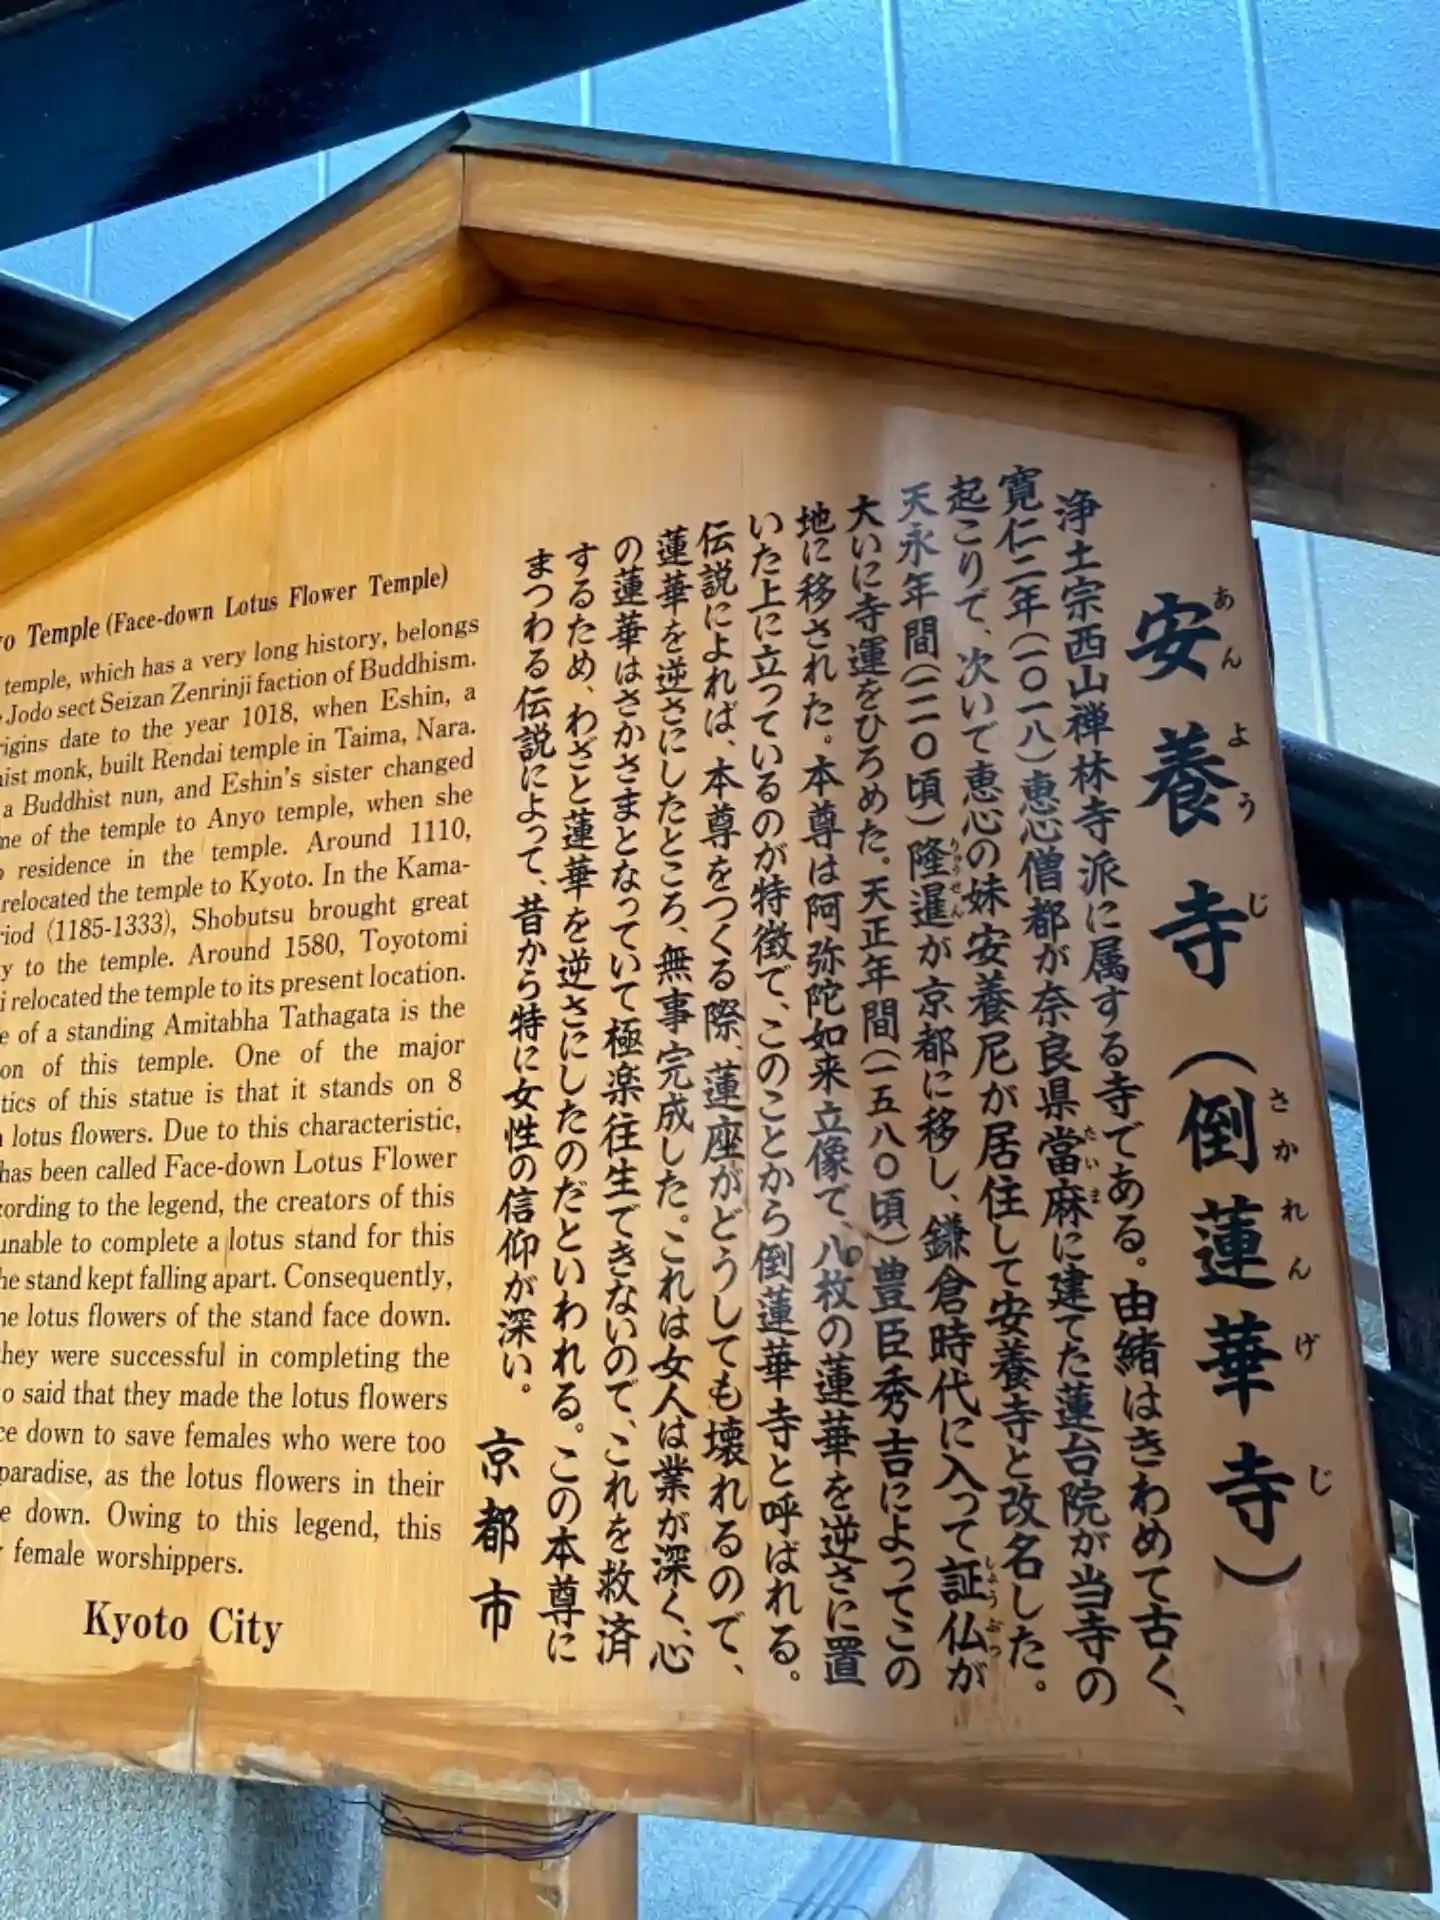 安養寺(倒蓮華寺)
あんようじ さかれんげじ
浄土宗西山禅林寺派に属する寺である。由緒はきわめて古く、
寛仁二年(一〇一八)恵心僧都が奈良県當麻に建てた蓮台院が当寺の
たいま
起こりで、次いで恵心の妹安養尼が居住して安養寺と改名した。
天永年間(一一一〇頃)隆暹が京都に移し、鎌倉時代に入って証仏が
りゅうせん しょうぶつ
大いに寺運をひろめた。天正年間(一五八〇頃)豊臣秀吉によってこの
地に移された。本尊は阿弥陀如来立像で、八枚の蓮華を逆さに置
いた上に立っているのが特徴で、このことから倒蓮華寺と呼ばれる。
伝説によれば、本尊をつくる際、蓮座がどうしても壊れるので、
蓮華を逆さにしたところ、無事完成した。これは女人は業が深く、心
の蓮華はさかさまとなっていて極楽往生できないので、これを救済
するため、わざと蓮華を逆さにしたのだといわれる。この本尊に
まつわる伝説によって、昔から特に女性の信仰が深い。
京都市
yo Temple (Face-down Lotus Flower Temple)
temple, which has a very long history, belongs
Jodo sect Seizan Zenrinji faction of Buddhism.
rigins date to the year 1018, when Eshin, a
hist monk, built Rendai temple in Taima, Nara.
a Buddhist nun, and Eshin's sister changed
me of the temple to Anyo temple, when she
residence in the temple. Around 1110,
relocated the temple to Kyoto. In the Kama-
riod (1185-1333), Shobutsu brought great
y to the temple. Around 1580, Toyotomi
i relocated the temple to its present location.
e of a standing Amitabha Tathagata is the
on of this temple. One of the major
tics of this statue is that it stands on 8
lotus flowers. Due to this characteristic,
has been called Face-down Lotus Flower
cording to the legend, the creators of this
unable to complete a lotus stand for this
he stand kept falling apart. Consequently,
he lotus flowers of the stand face down.
they were successful in completing the
o said that they made the lotus flowers
ce down to save females who were too
paradise, as the lotus flowers in their
e down. Owing to this legend, this
female worshippers.
Kyoto City